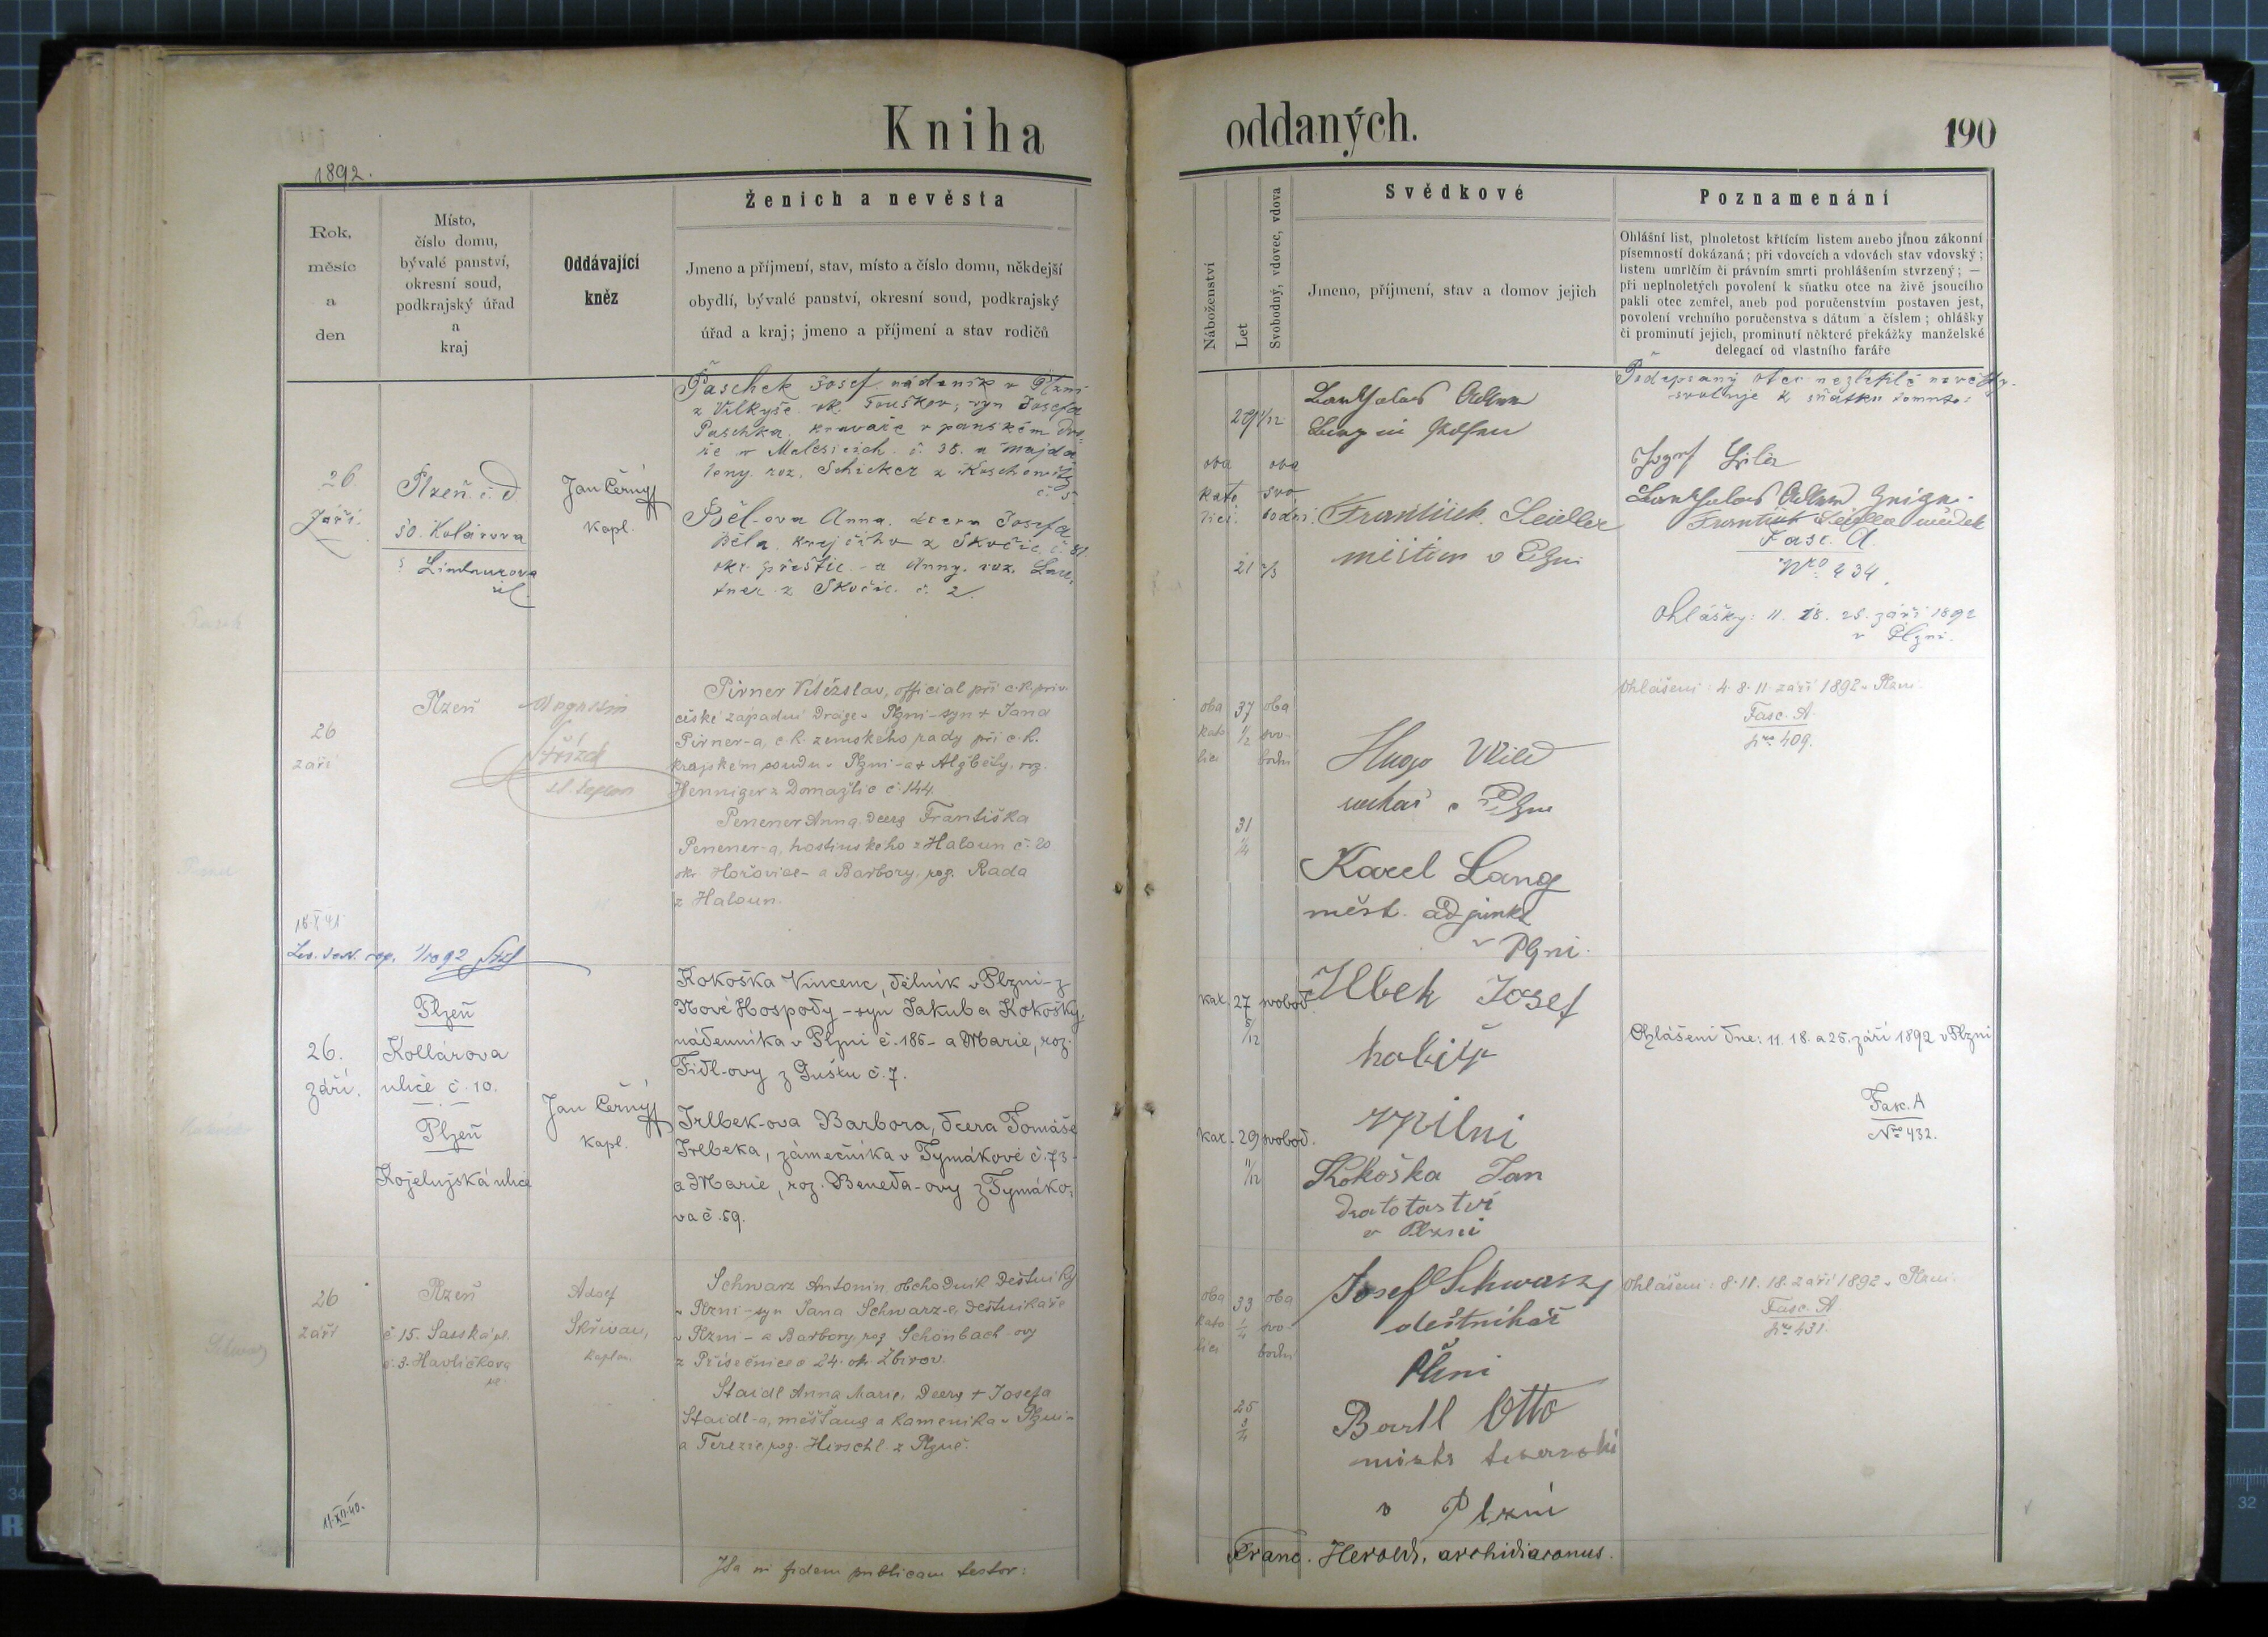 Kniha
1892.
Rok,
měsíc
a
den
Místo,
číslo domu,
bývalé panství,
okresní soud,
podkrajský úřad
a
kraj
Oddávající
kněz
Ženich a nevěsta
Jmeno a příjmení, stav, místo a číslo domu, někdejší
obydlí, bývalé panství, okresní soud, podkrajský
úřad a kraj; jmeno a příjmení a stav rodičů
26
Září.
Plzeň č. d
50. Kolárova
ul.
Jan Černý
Kapl.
Paschek Josef nádeník v Plzni
z Vlkyše ok. Touškov, syn Josefa
Paschka, kravaře v panském dvo-
ře v Malesicích č. 38. a Majda
leny roz. Schicker z
č. 5
Běl-ova Anna, dcera Josefa
Běla, krejčího z Skočic č. 81
okr. přeštic. - a Anny, roz. Lau-
tner z Skočic č. 2.
26
září
Plzeň
Pirner Vítězslav, official při c. k. priv.
české západní dráze v Plzni - syn + Jana
Pirner-a, c. k. zemského rady při c. k.
krajském soudu v Plzni - a + Alžběty, roz.
Henniger z Domažlic č. 144.
Penener Anna, dcera Františka
Penener-a, hostinského z Haloun č. 20
okr. Hořovice - a Barbory, roz. Rada
z Haloun.
26.
září.
Plzeň
Kollárova
ulice č. 10.
Plzeň
Koželužská ulice
Jan Černý
Kapl.
Kokoška Vincenc, dělník v Plzni - z
Nové Hospody - syn Jakuba Kokošky,
nádenníka v Plzni č. 186 - a Marie, roz.
Fidl-ovy z Druztu č. 7.
Irlbek-ova Barbora, dcera Tomáše
Irlbeka, zámečníka v Tymákově č. 73 -
a Marie, roz. Beneda-ovy z Tymáko-
va č. 59.
26
září
Plzeň
č 15. Sasská ul.
č. 3. Havlíčkova
ul.
Adolf
Skřivan,
kaplan.
Schwarz Antonín obchodník deštníky
v Plzni - syn Jana Schwarz-a, deštníkáře
v Plzni - a Barbory, roz. Schönbach-ovy
z Přísečnice č 24. ok. Zbirov.
Staidl Anna Marie, dcera + Josefa
Staidl-a, měšťana a kameníka v Plzni -
a Terezie, roz. Hirschl z Plzně.
11.XII.40.
Ita in fidem publicam testor:
oddaných.
190
Náboženství
Let
Svobodný, vdovec, vdova
Svědkové
Jmeno, příjmení, stav a domov jejich
Poznamenání
Ohlášní list, plnoletost křticím listem anebo jinou zákonní
písemností dokázaná; při vdovcích a vdovách stav vdovský;
listem umrlčím či právním smrti prohlášením stvrzený; —
při neplnoletých povolení k sňatku otce na živě jsoucího
pakli otec zemřel, aneb pod poručenstvím postaven jest,
povolení vrchního poručenstva s dátum a číslem; ohlášky
či prominutí jejich, prominutí některé překážky manželské
delegací od vlastního faráře
oba
kato
lici.
21
oba
svo
bodni.
František Seidler
v Plzni
Podepsaný otec nezletilé nevěsty
svoluje k sňatku tomuto:
Fasc. A.
Nro 434.
Ohlášky: 11. 18. 25. září 1892
v Plzni.
oba
kato
lici
37
1/2
31
1/4
oba
svo-
bodni
Hugo Wild
Karel Lang
měst. adjunkt
v Plzni.
Ohlášeni: 4. 8. 11. září 1892 v Plzni.
Fasc. A.
Nro 409.
kat. 27 svobod.
5/12
kat. 29 svobod.
11/12
Ilbek Josef
v Plzni
Kokoška Jan
v Plzni
Ohlášeni dne: 11. 18. a 25. září 1892 v Plzni
Fasc. A
Nro 432.
oba
kato
lici
33
1/4
25
3/4
oba
svo-
bodni
Josef Schwarz
deštníkář
Plzni
Bartl Otto
mistr
v Plzni
Ohlášeni: 8. 11. 18. září 1892 v Plzni.
Fasc. A.
Nro 431.
Franc. Herold, archidiaconus.